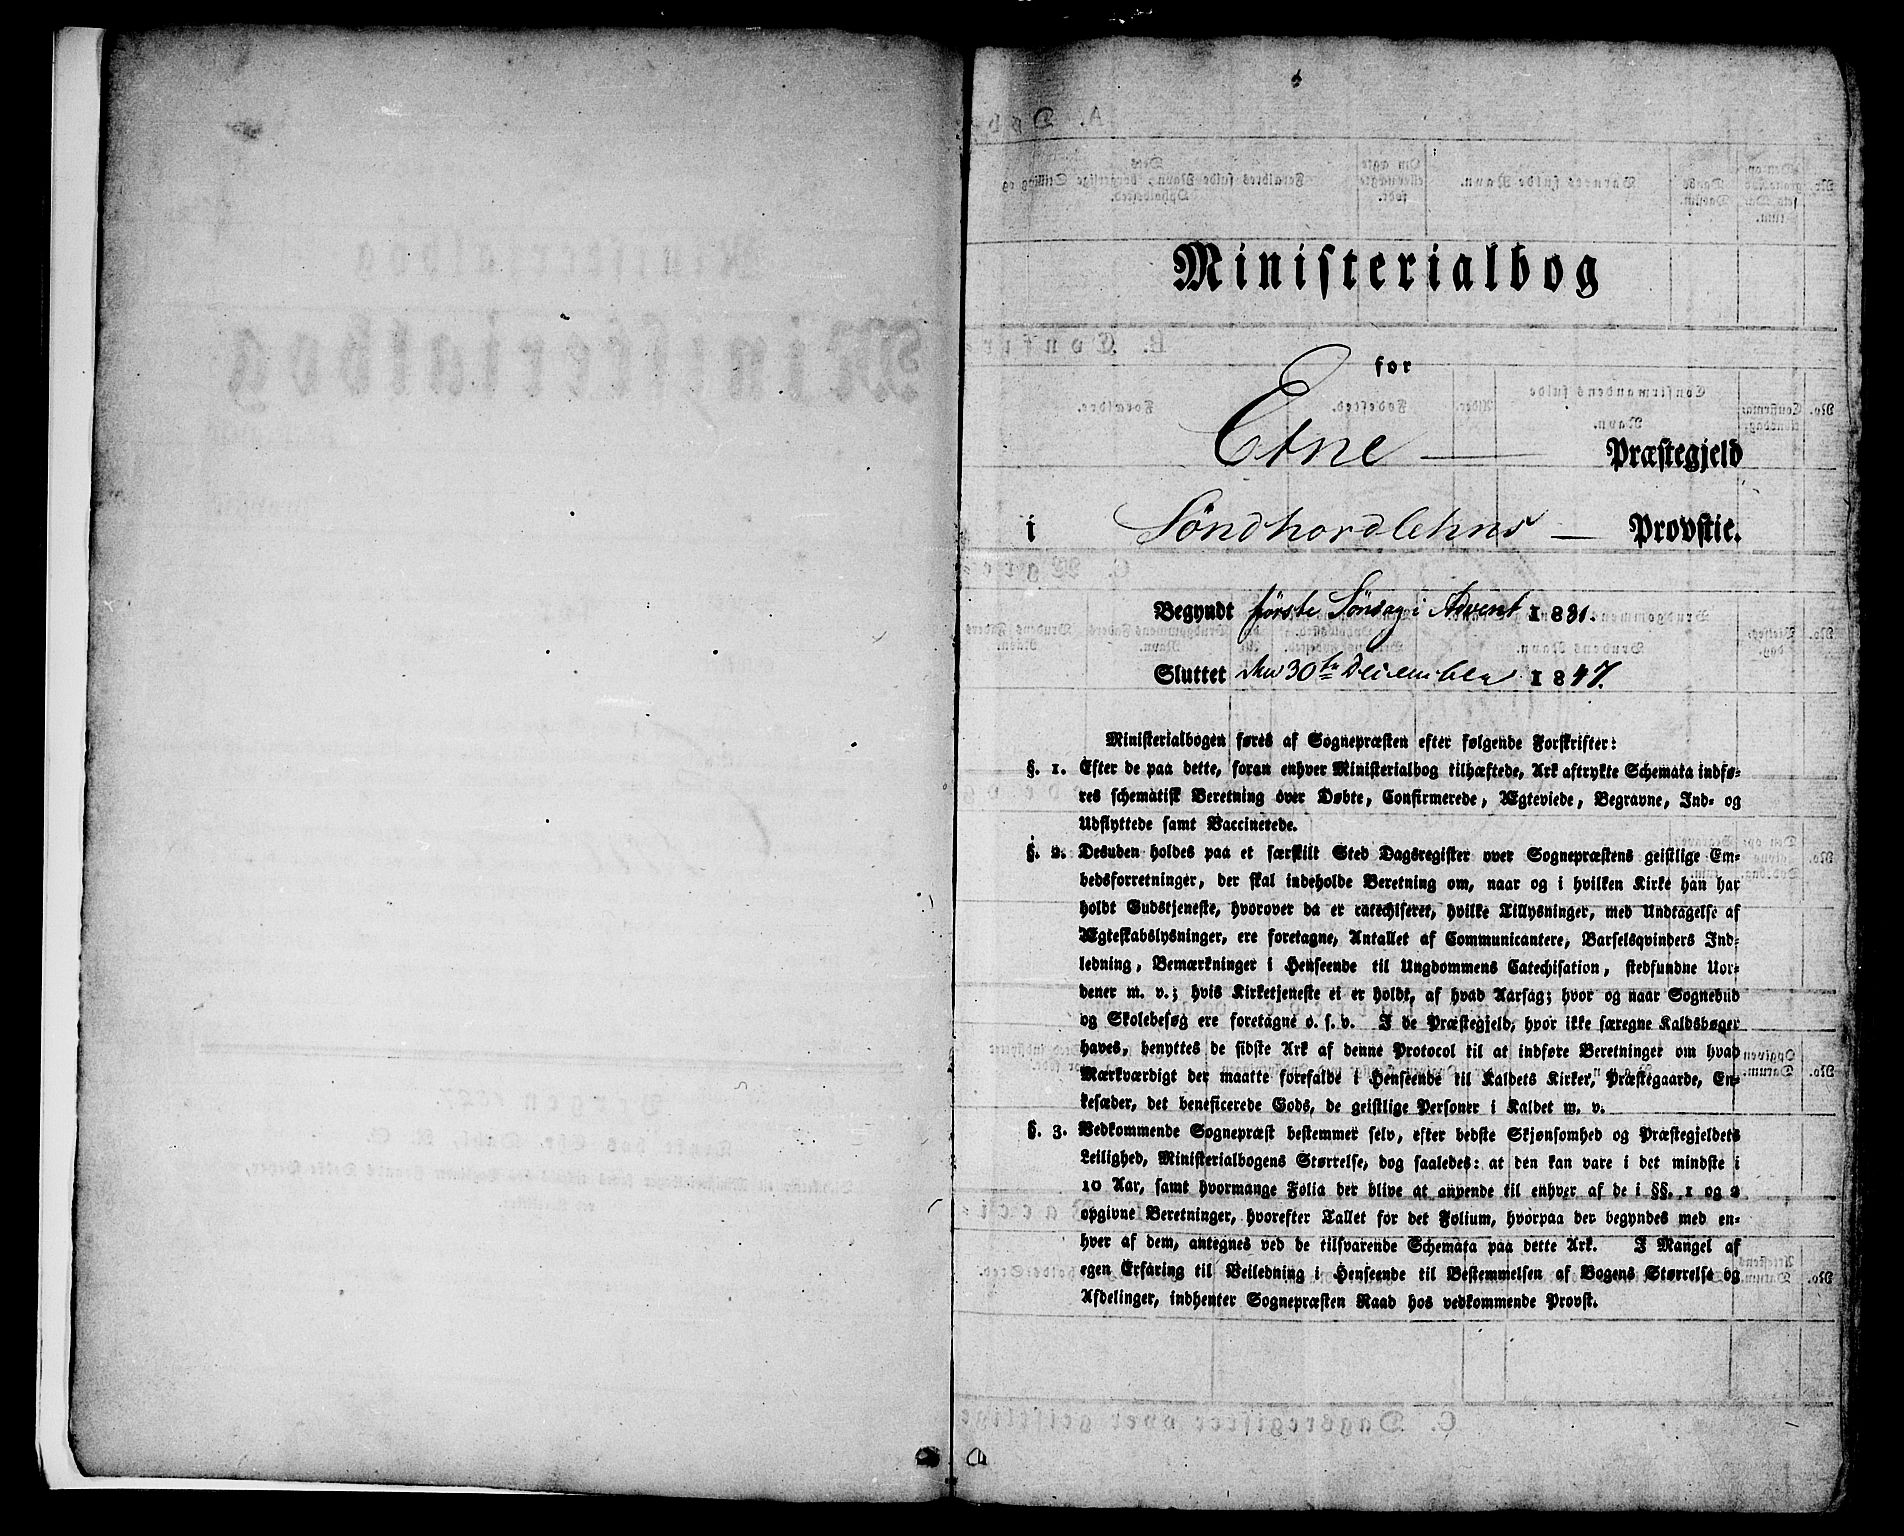 Ministerialbog
for
Etne Præstegjeld
i Söndhordlehns Provstie.
Begyndt förste Söndag i Advent 1831.
Sluttet den 30te December 1847.
Ministerialbogen føres af Sognepræsten efter følgende Forskrifter:
§. 1. Efter de paa dette, foran enhver Ministerialbog tilhæftede, Ark aftrykte Schemata indfø-
res schematisk Beretning over Døbte, Confirmerede, Ægteviede, Begravne, Ind- og
Udflyttede samt Vaccinerede.
§. 2. Desuden holdes paa et særskilt Sted Dagsregister over Sognepræstens geistlige Em-
bedsforretninger, der skal indeholde Beretning om, naar og i hvilken Kirke han har
holdt Gudstjeneste, hvorover da er catechiseret, hvilke Tillysninger, med Undtagelse af
Ægteskabslysninger, ere foretagne, Antallet af Communicantere, Barselsqvinders Ind-
ledning, Bemærkninger i Henseende til Ungdommens Catechisation, stedfundne Uor-
dener m. v.; hvis Kirketjeneste ei er holdt, af hvad Aarsag; hvor og naar Sognebud
og Skolebesøg ere foretagne o. s. v. I de Præstegjeld, hvor ikke særegne Kaldsbøger
haves, benyttes de sidste Ark af denne Protocol til at indføre Beretninger om hvad
Mærkværdigt der maatte forefalde i Henseende til Kaldets Kirker, Præstegaarde, En-
kesæder, det beneficerede Gods, de geistlige Personer i Kaldet m. v.
§. 3. Vedkommende Sognepræst bestemmer selv, efter bedste Skjønsomhed og Præstegjeldets
Leilighed, Ministerialbogens Størrelse, dog saaledes: at den kan vare i det mindste i
10 Aar, samt hvormange Folia der blive at anvende til enhver af de i §§. 1 og 2
opgivne Beretninger, hvorefter Tallet for det Folium, hvorpaa der begyndes med en-
hver af dem, antegnes ved de tilsvarende Schemata paa dette Ark. I Mangel af
egen Erfaring til Veiledning i Henseende til Bestemmelsen af Bogens Størrelse og
Afdelinger, indhenter Sognepræsten Raad hos vedkommende Provst.